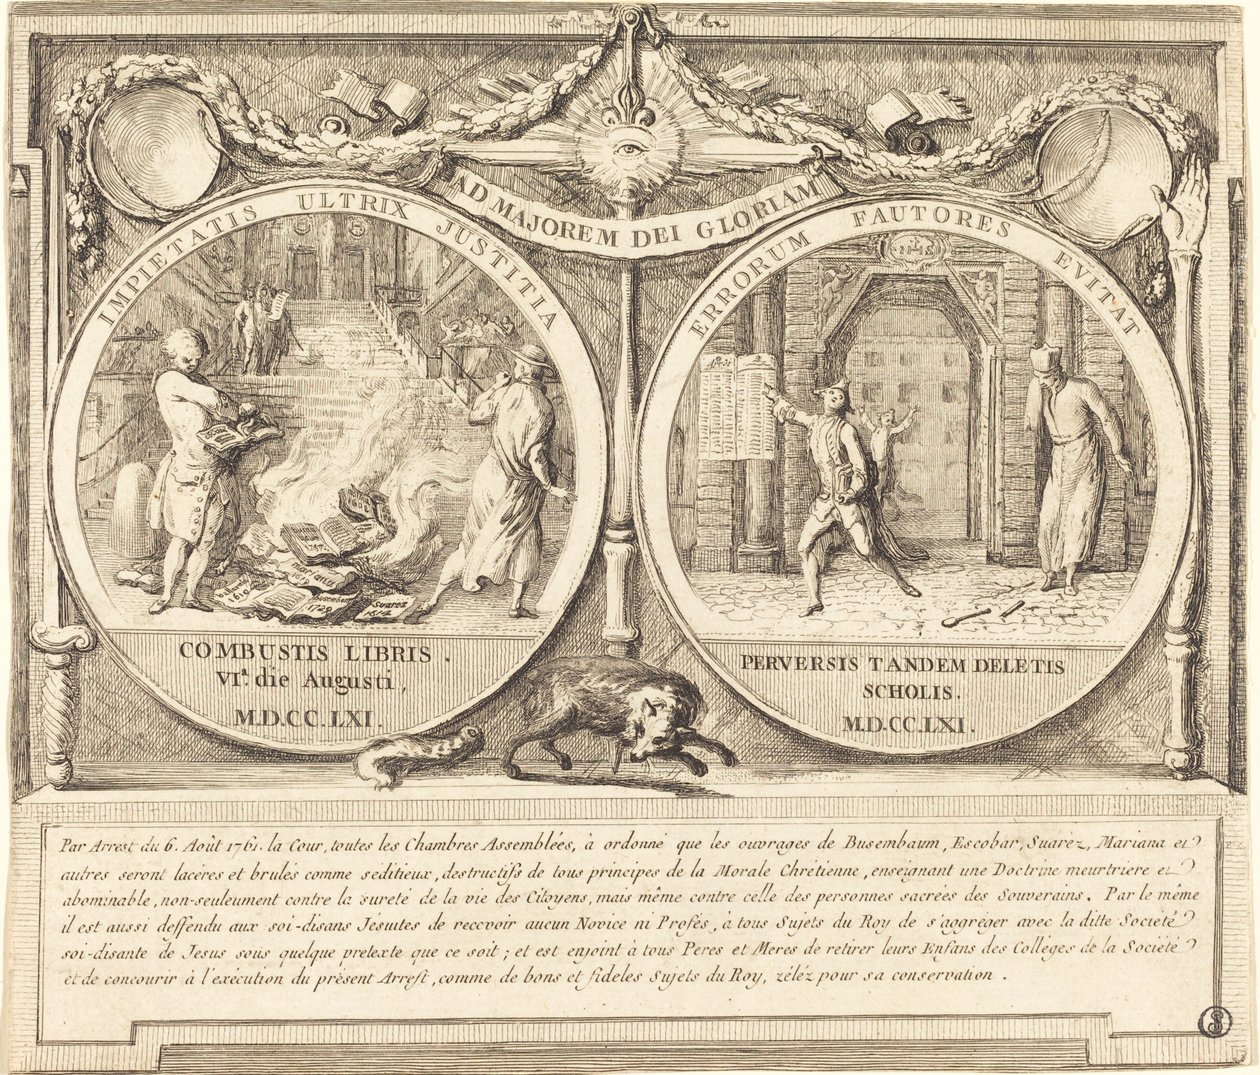 AD MAJOREM DEI GLORIAM
IMPIETATIS ULTRIX JUSTITIA
COMBUSTIS LIBRIS.
VIa. die Augusti,
M.D.CC.LXI.
ERRORUM FAUTORES EVITAT
IHS
PERVERSIS TANDEM DELETIS
SCHOLIS.
M.D.CC.LXI.
1729
Suarez
1614
Par Arrest du 6. Août 1761. la Cour, toutes les Chambres Assemblées, à ordonné que les ouvrages de Busembaum, Escobar, Suarèz, Mariana et
autres seront lacérés et brulés comme seditieux, destructifs de tous principes de la Morale Chrétienne, enseignant une Doctrine meurtriere et
abominable, non-seuleument contre la sureté de la vie des Citoyens, mais même contre celle des personnes sacrées des Souverains. Par le même
il est aussi deffendu aux soi-disans Jésuites de reccvoir aucun Novice ni Profés, à tous Sujets du Roy de s'aggréger avec la ditte Societé
soi-disante de Jesus sous quelque pretexte que ce soit; et est enjoint à tous Peres et Meres de retirer leurs Enfans des Colléges de la Societé
et de concourir à l'exécution du présent Arrest, comme de bons et fideles Sujets du Roy, zéléz pour sa conservation.